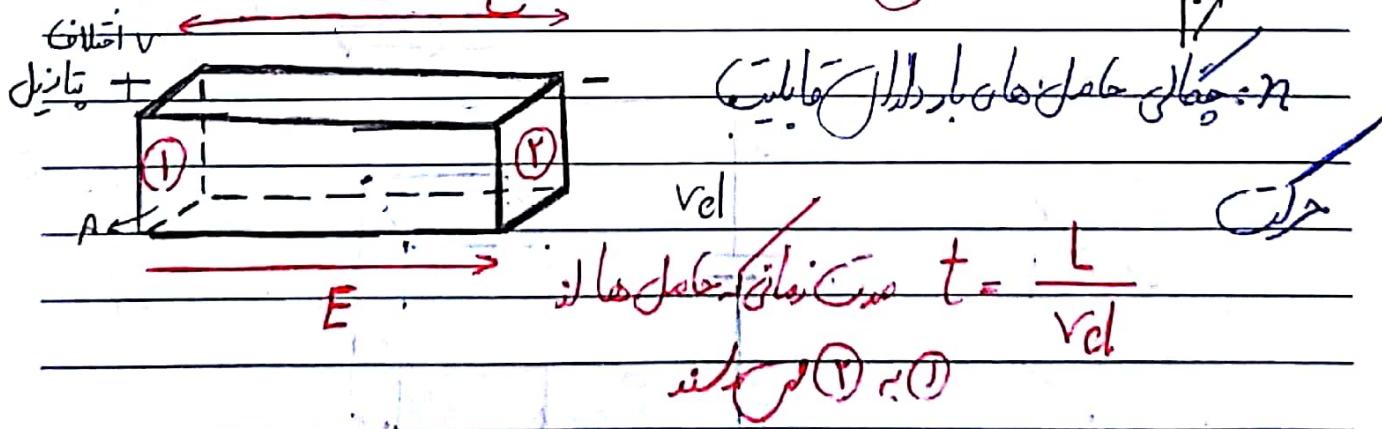 L
V اختلاف
پتانسیل + -
n: چگالی حامل های بار دارای قابلیت
حرکت
① ②
A
vd
E
مدت زمانی که حامل ها از t = L / vd
① به ② می رسند